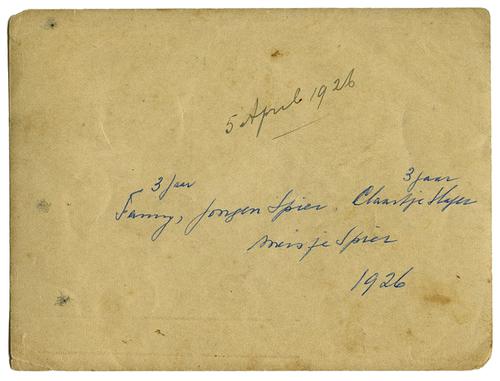 5 April 1926
3 jaar 3 jaar
Fanny, jongen Spier. Claartje
meisje Spier
1926